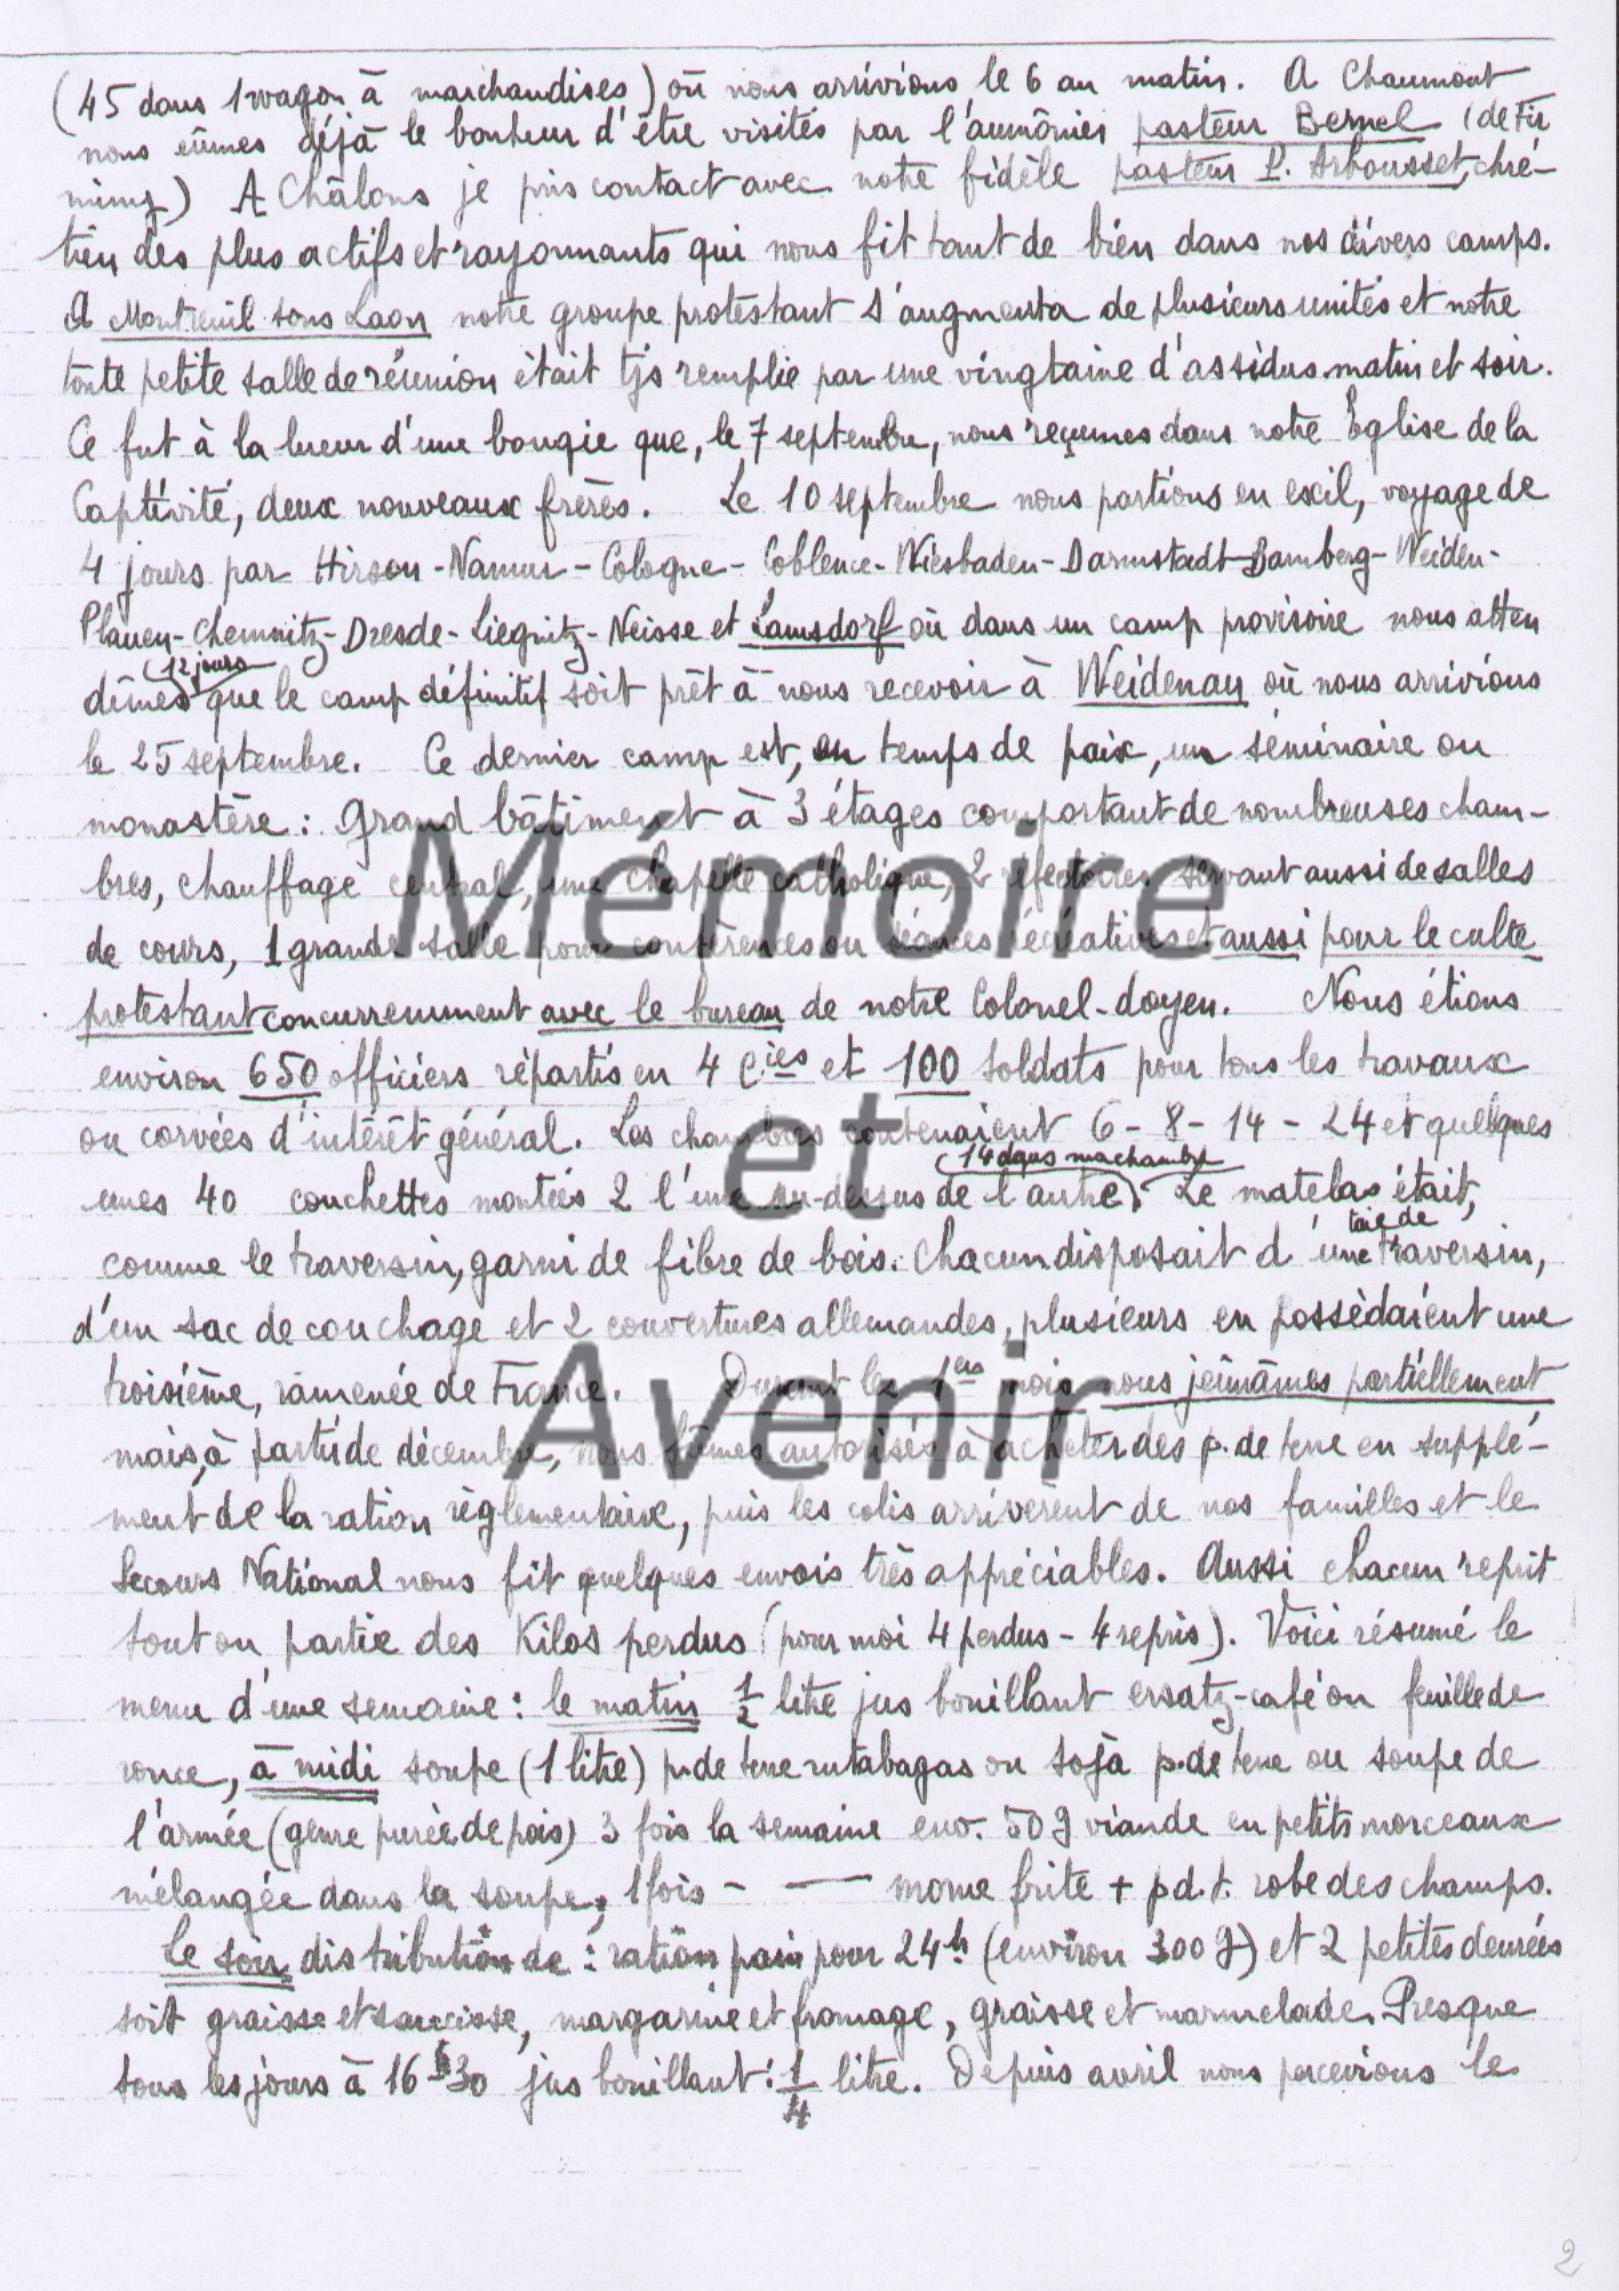 (45 dans 1 wagon à marchandises) où nous arrivions le 6 au matin. A Chaumont
nous eûmes déjà le bonheur d'être visités par l'aumônier pasteur Bernel (de Fir
miny) A Châlons je pris contact avec notre fidèle pasteur P. Arbousset, chré-
tien des plus actifs et rayonnants qui nous fit tant de bien dans nos divers camps.
A Montreuil sous Laon notre groupe protestant s'augmenta de plusieurs unités et notre
toute petite salle de réunion était tjs remplie par une vingtaine d'assidus matin et soir.
Ce fut à la lueur d'une bougie que, le 7 septembre, nous reçumes dans notre Eglise de la
Captivité, deux nouveaux frères. Le 10 septembre nous partions en exil, voyage de
4 jours par Hirson - Namur - Cologne - Coblence - Wiesbaden - Darmstadt - Bamberg - Weiden -
Plauen - Chemnitz - Dresde - Liegnitz - Neisse et Lamsdorf où dans un camp provisoire nous atten
(12 jours)
dîmes que le camp définitif soit prêt à nous recevoir à Weidenau où nous arrivions
le 25 septembre. Ce dernier camp est, en temps de paix, un séminaire ou
monastère : grand bâtiment à 3 étages comportant de nombreuses cham-
bres, chauffage central, une chapelle catholique, 2 réfectoires servant aussi de salles
de cours, 1 grande salle pour conférences ou séances récréatives et aussi pour le culte
protestant concurremment avec le bureau de notre Colonel-doyen. Nous étions
environ 650 officiers répartis en 4 Cies et 100 soldats pour tous les travaux
ou corvées d'intérêt général. Les chambres contenaient 6 - 8 - 14 - 24 et quelques
(14 dans ma chambre)
unes 40 couchettes montées 2 l'une au-dessus de l'autre. Le matelas était,
taie de
comme le traversin, garni de fibre de bois. Chacun disposait d'une traversin,
d'un sac de couchage et 2 couvertures allemandes, plusieurs en possédaient une
troisième, ramenée de France. Durant les 1ers mois nous jeûnâmes partiellement
mais, à partir de décembre, nous fûmes autorisés à acheter des p. de terre en supplé-
ment de la ration règlementaire, puis les colis arrivèrent de nos familles et le
Secours National nous fit quelques envois très appréciables. Aussi chacun reprit
tout ou partie des Kilos perdus (pour moi 4 perdus - 4 repris). Voici résumé le
menu d'une semaine : le matin 1/2 litre jus bouillant ersatz-café ou feuille de
ronce, à midi soupe (1 litre) p. de terre rutabagas ou soja p. de terre ou soupe de
l'armée (genre purée de pois) 3 fois la semaine env. 50 g viande en petits morceaux
mélangée dans la soupe, 1 fois - — morue frite + p.d.t. robe des champs.
Le soir distribution de : ration pain pour 24h (environ 300 g) et 2 petites denrées
soit graisse et saucisse, margarine et fromage, graisse et marmelade. Presque
tous les jours à 16h30 jus bouillant : 1/4 litre. Depuis avril nous percevions le
Mémoire
et
Avenir
2